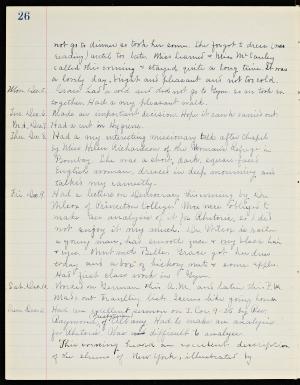 26
not go to dinner so took her some. She forgot to dress (was
reading) until too late. Miss Learned & Miss McCauley
called this evening & stayed quite a long time. It was
a lovely day, bright and pleasant and not too cold.
Mon. Dec. 5. Grace has a cold and did not go to Gym so we took it
together. Had a very pleasant walk.
Tue. Dec. 6. Made an important decision. Hope it can be carried out.
Wed. Dec. 7. Had a cut in Hygiene.
Thu. Dec. 8. Had a very interesting missionary talk after chapel
by Miss Helen Richardson of the Woman's Refuge in
Bombay. She was a short, dark, square-faced
English woman, dressed in deep mourning and
talked very earnestly.
Fri. Dec. 9. Had a lecture on this evening by Dr.
Wilcox of Princeton College. We were obliged to
make an analysis of it for Rhetoric, so I did
not enjoy it very much. Dr. Wilcox is quite
a young man, has smooth face & very black hair
& eyes. Grace got her dress
today and a box of and some apples.
Had first class work in Gym.
Sat. Dec. 10. Worked on German this A.M. and Latin this P.M.
Made out but seems like going home.
Sun. Dec. 11. Had an excellent sermon on I Cor. 9-25 by Rev.
Raymond, of Albany. Had to make an analysis
for Rhetoric. Was not difficult to analyze.
This evening heard an excellent description
of the slums of New York, illustrated by